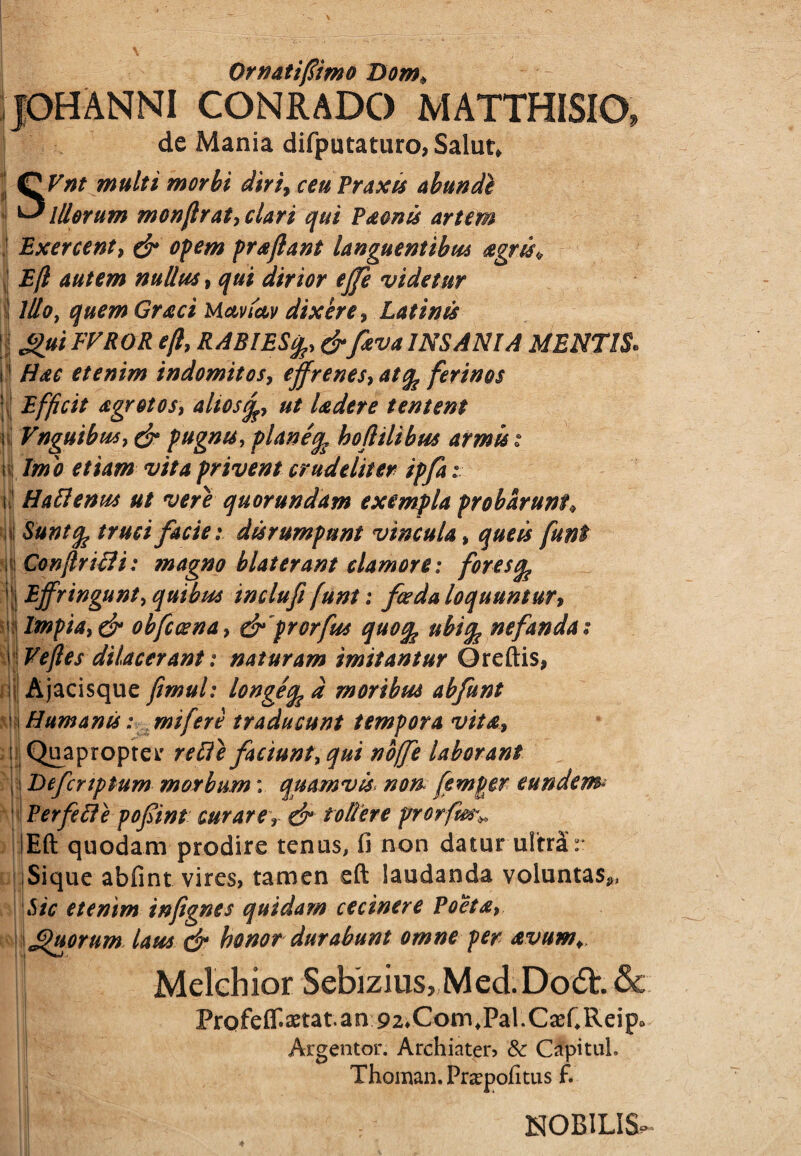 Ornatißimo Dom.
JOHANNI CONRADO MATTHISIO,
de Mania diſputaturo, Salut.
SVnt multi morbi diri, ceu Praxis abundè
Illorum monſtrat, clari qui Pæonis artem
Exercent, & opem præſtant languentibus ægris.
Eſt autem nullus, qui dirior eſſe videtur
Illo, quem Græci Μανίαν dixère, Latinis
Qui FVROR eſt, RABIESq́;, & ſæva INSANIA MENTIS.
Hæc etenim indomitos, effrenes, atq; ferinos
Efficit ægrotos, aliosq́;, ut lædere tentent
Vnguibus, & pugnis, planéq; hoſtilibus armis:
Imò etiam vita privent crudeliter ipſa:
Hactenus ut verè quorundam exempla probârunt.
Suntq; truci facie: disrumpunt vincula, queis ſunt
Conſtricti: magno blaterant clamore: foresq;
Effringunt, quibus incluſi ſunt: fœda loquuntur,
Impia, & obſcœna, & prorſus quoq; ubiq; nefanda:
Veſtes dilacerant: naturam imitantur Oreſtis,
Ajacisque ſimul: longéq; à moribus abſunt
Humanis: miſerè traducunt tempora vitæ,
Quapropter rectè faciunt, qui nôſſe laborant
Deſcriptum morbum: quamvis non ſemper eundem
Perfectè poßint curare, & tollere prorſus.
Eſt quodam prodire tenus, ſi non datur ultrà:
Sique abſint vires, tamen eſt laudanda voluntas,
Sic etenim inſignes quidam cecinere Poëtæ,
Quorum laus & honor durabunt omne per ævum.
Melchior Sebizius, Med. Doct. &
Profeſſ. ætat. an 92. Com. Pal. Cæſ. Reip.
Argentor. Archiater, & Capitul.
Thoman. Præpoſitus f.
NOBILIS-